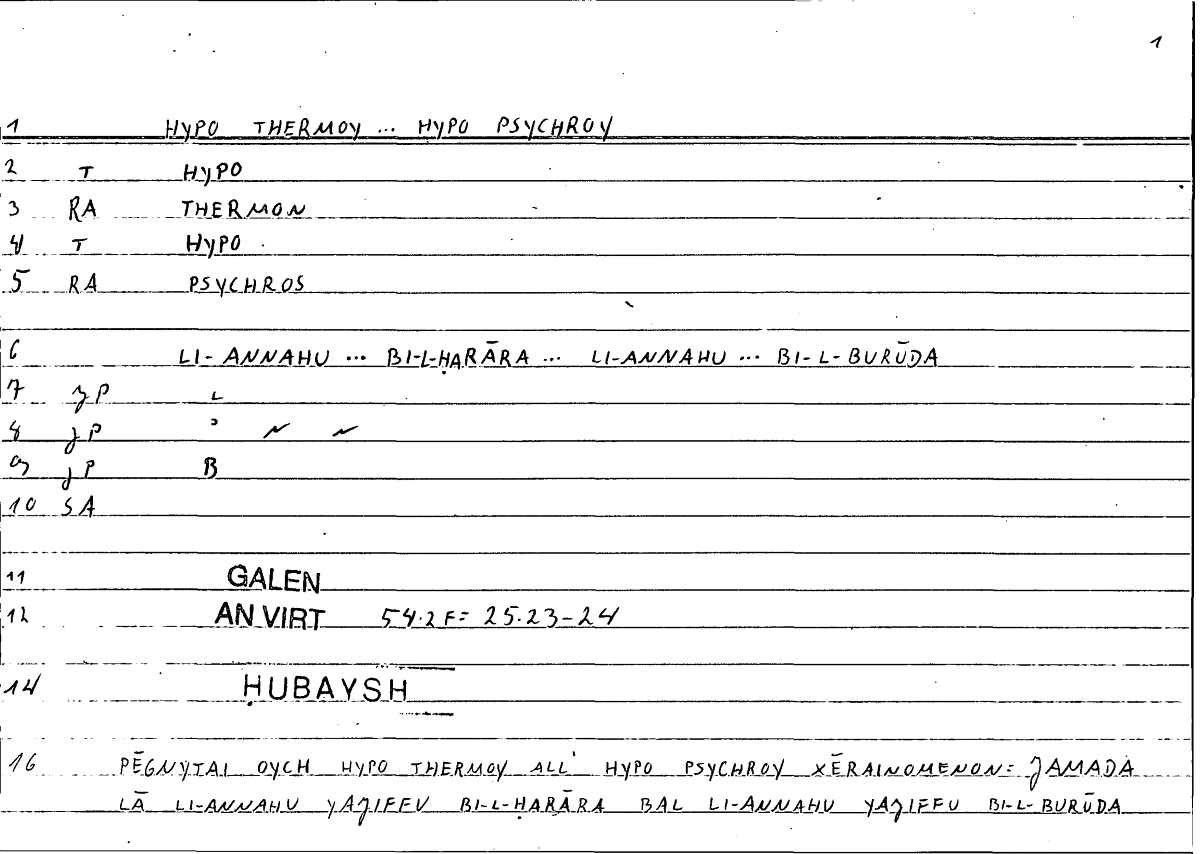 1
1 HYPO THERMOY ... HYPO PSYCHROY
2 T HYPO
3 RA THERMON
4 T HYPO
5 RA PSYCHROS
6 LI-ANNAHU ... BI-L-ḤARĀRA ... LI-ANNAHU ... BI-L-BURŪDA
7 JP L
8 JP ʾ N N
9 JP B
10 SA
11 GALEN
12 AN VIRT 54.2 F = 25.23-24
14 ḤUBAYSH
16 PĒGNYTAI OYCH HYPO THERMOY ALL' HYPO PSYCHROY XĒRAINOMENON: JAMADA
LĀ LI-ANNAHU YAJIFFU BI-L-ḤARĀRA BAL LI-ANNAHU YAJIFFU BI-L-BURŪDA